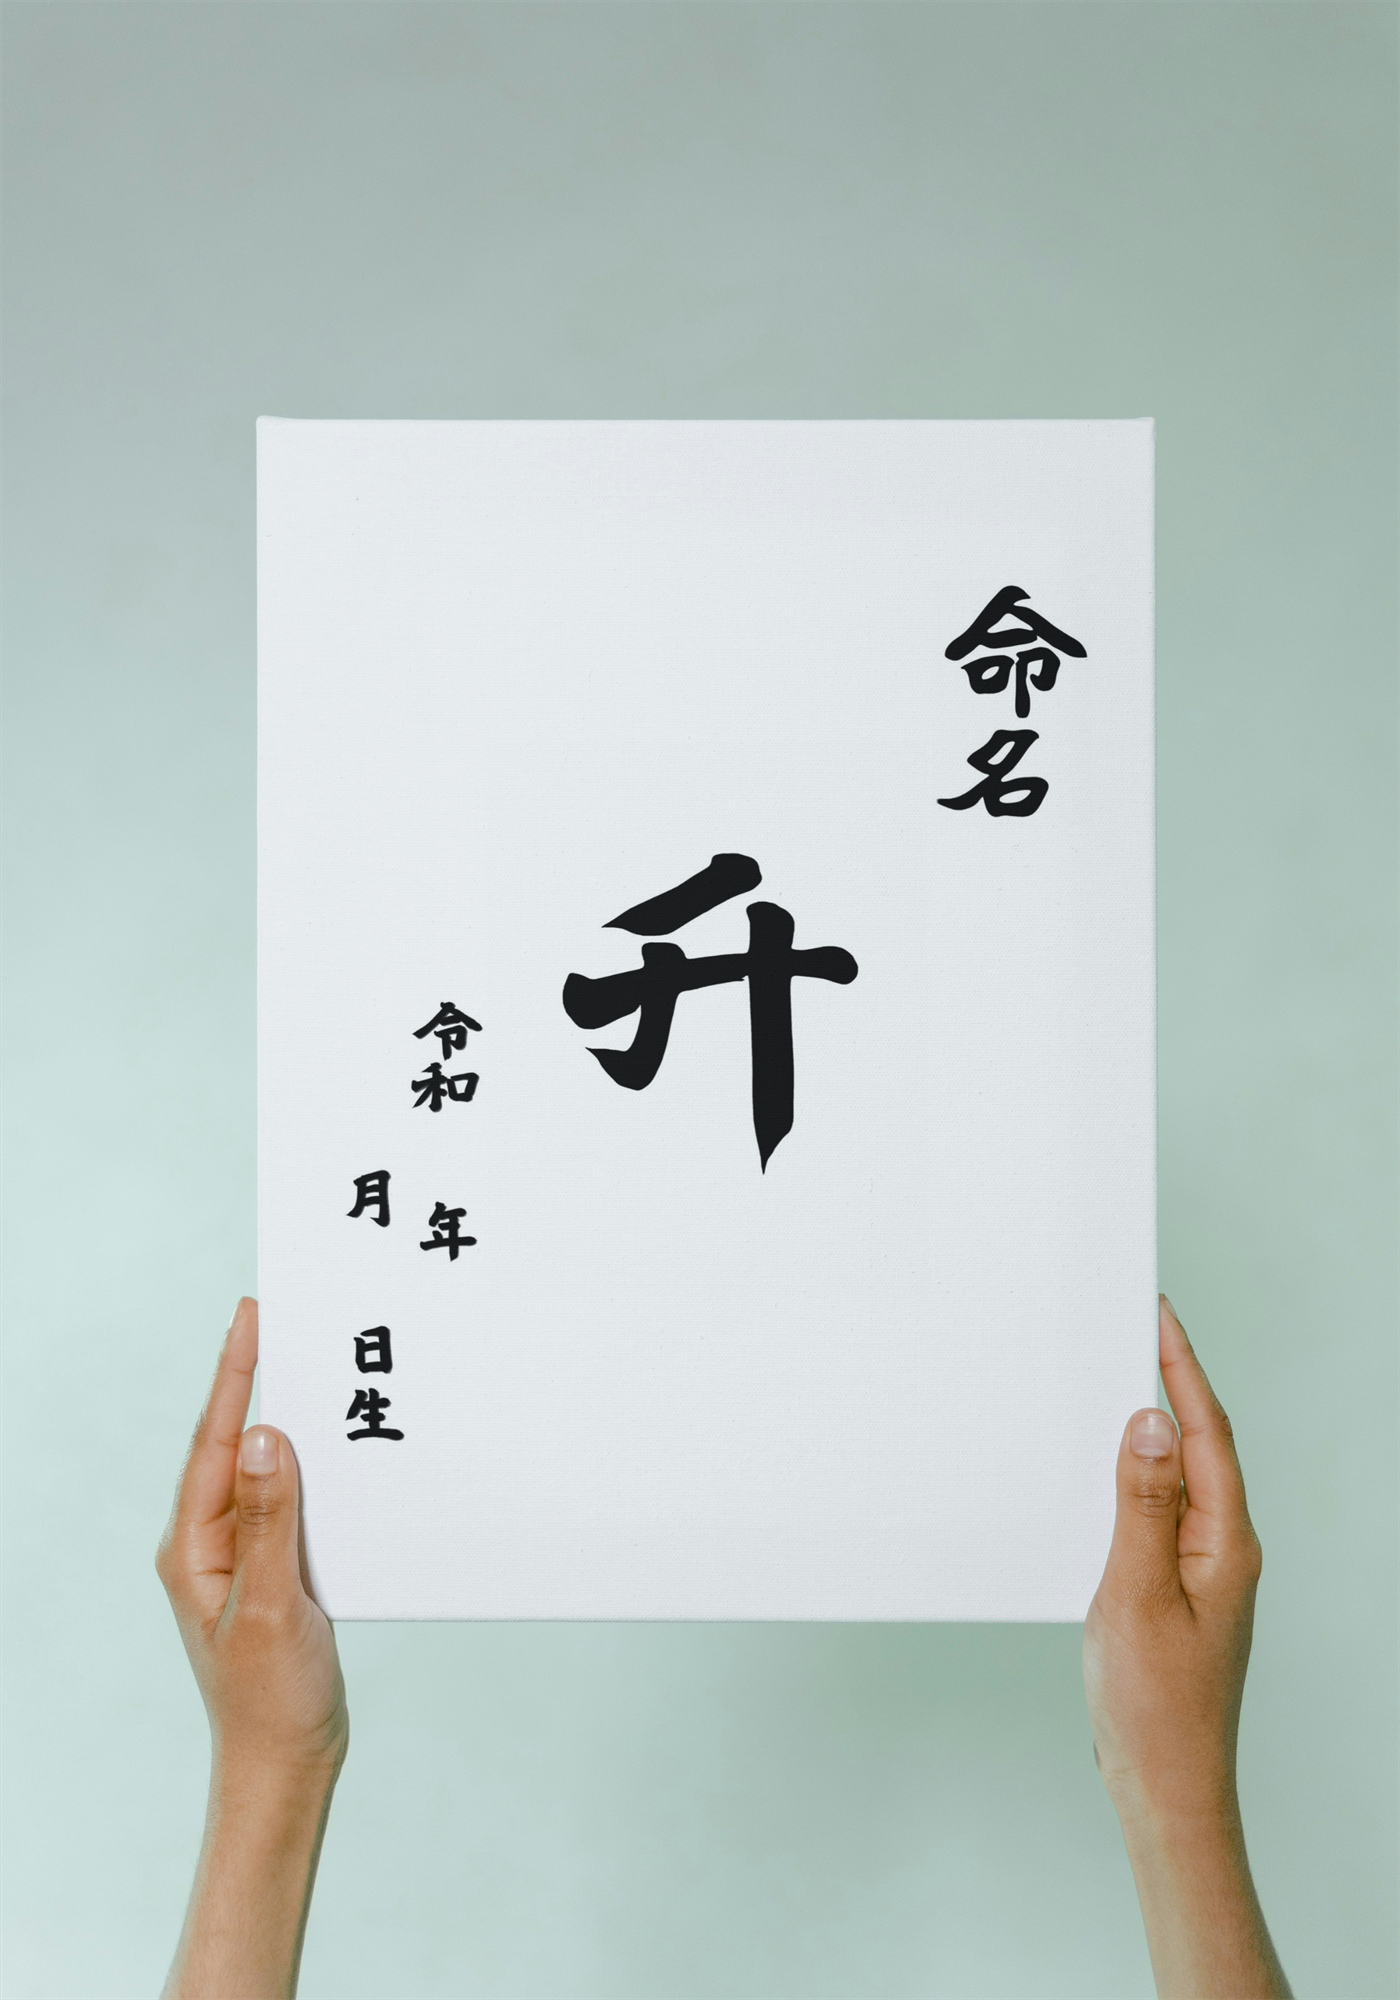 命名
升
令和 年
月 日生